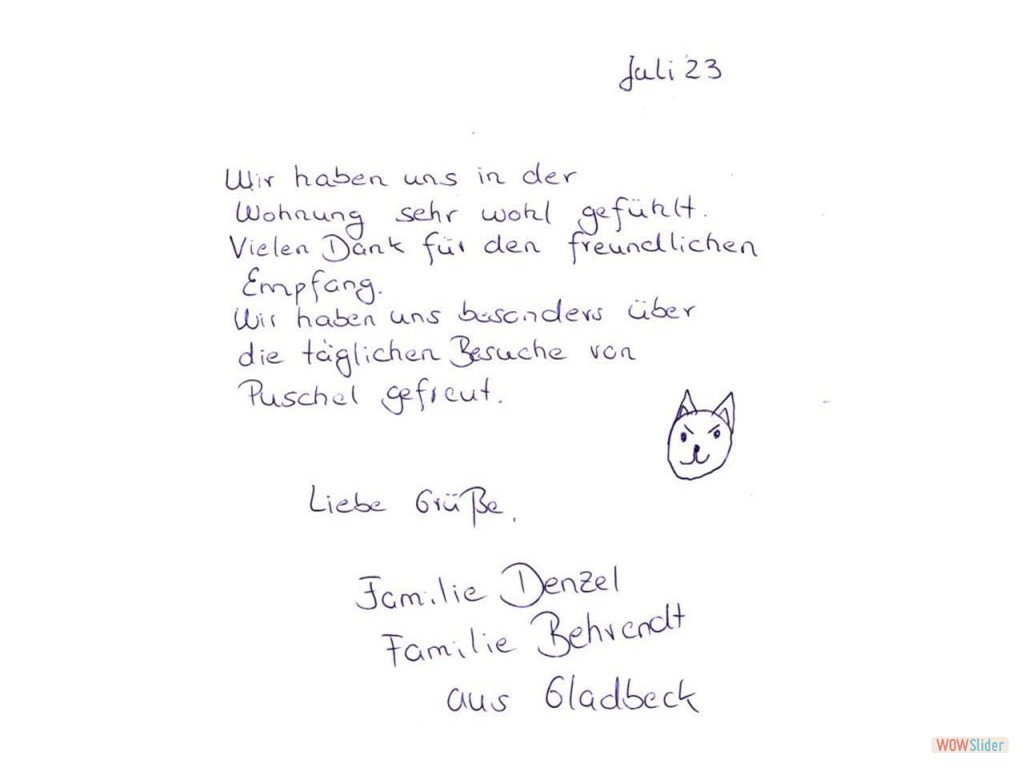 Juli 23
Wir haben uns in der
Wohnung sehr wohl gefühlt.
Vielen Dank für den freundlichen
Empfang.
Wir haben uns besonders über
die täglichen Besuche von
Puschel gefreut.
Liebe Grüße.
Familie Denzel
Familie Behrendt
aus Gladbeck
WOWSlider